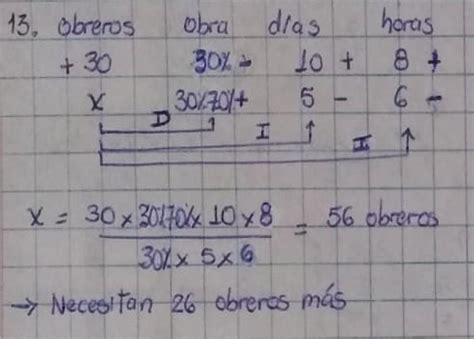 13. obreros obra días horas
+ 30 30% - 10 + 8 +
x 30%70%+ 5 - 6 -
D I I
x = 30 x 30%70% x 10 x 8 = 56 obreros
30% x 5 x 6
→ Necesitan 26 obreros más